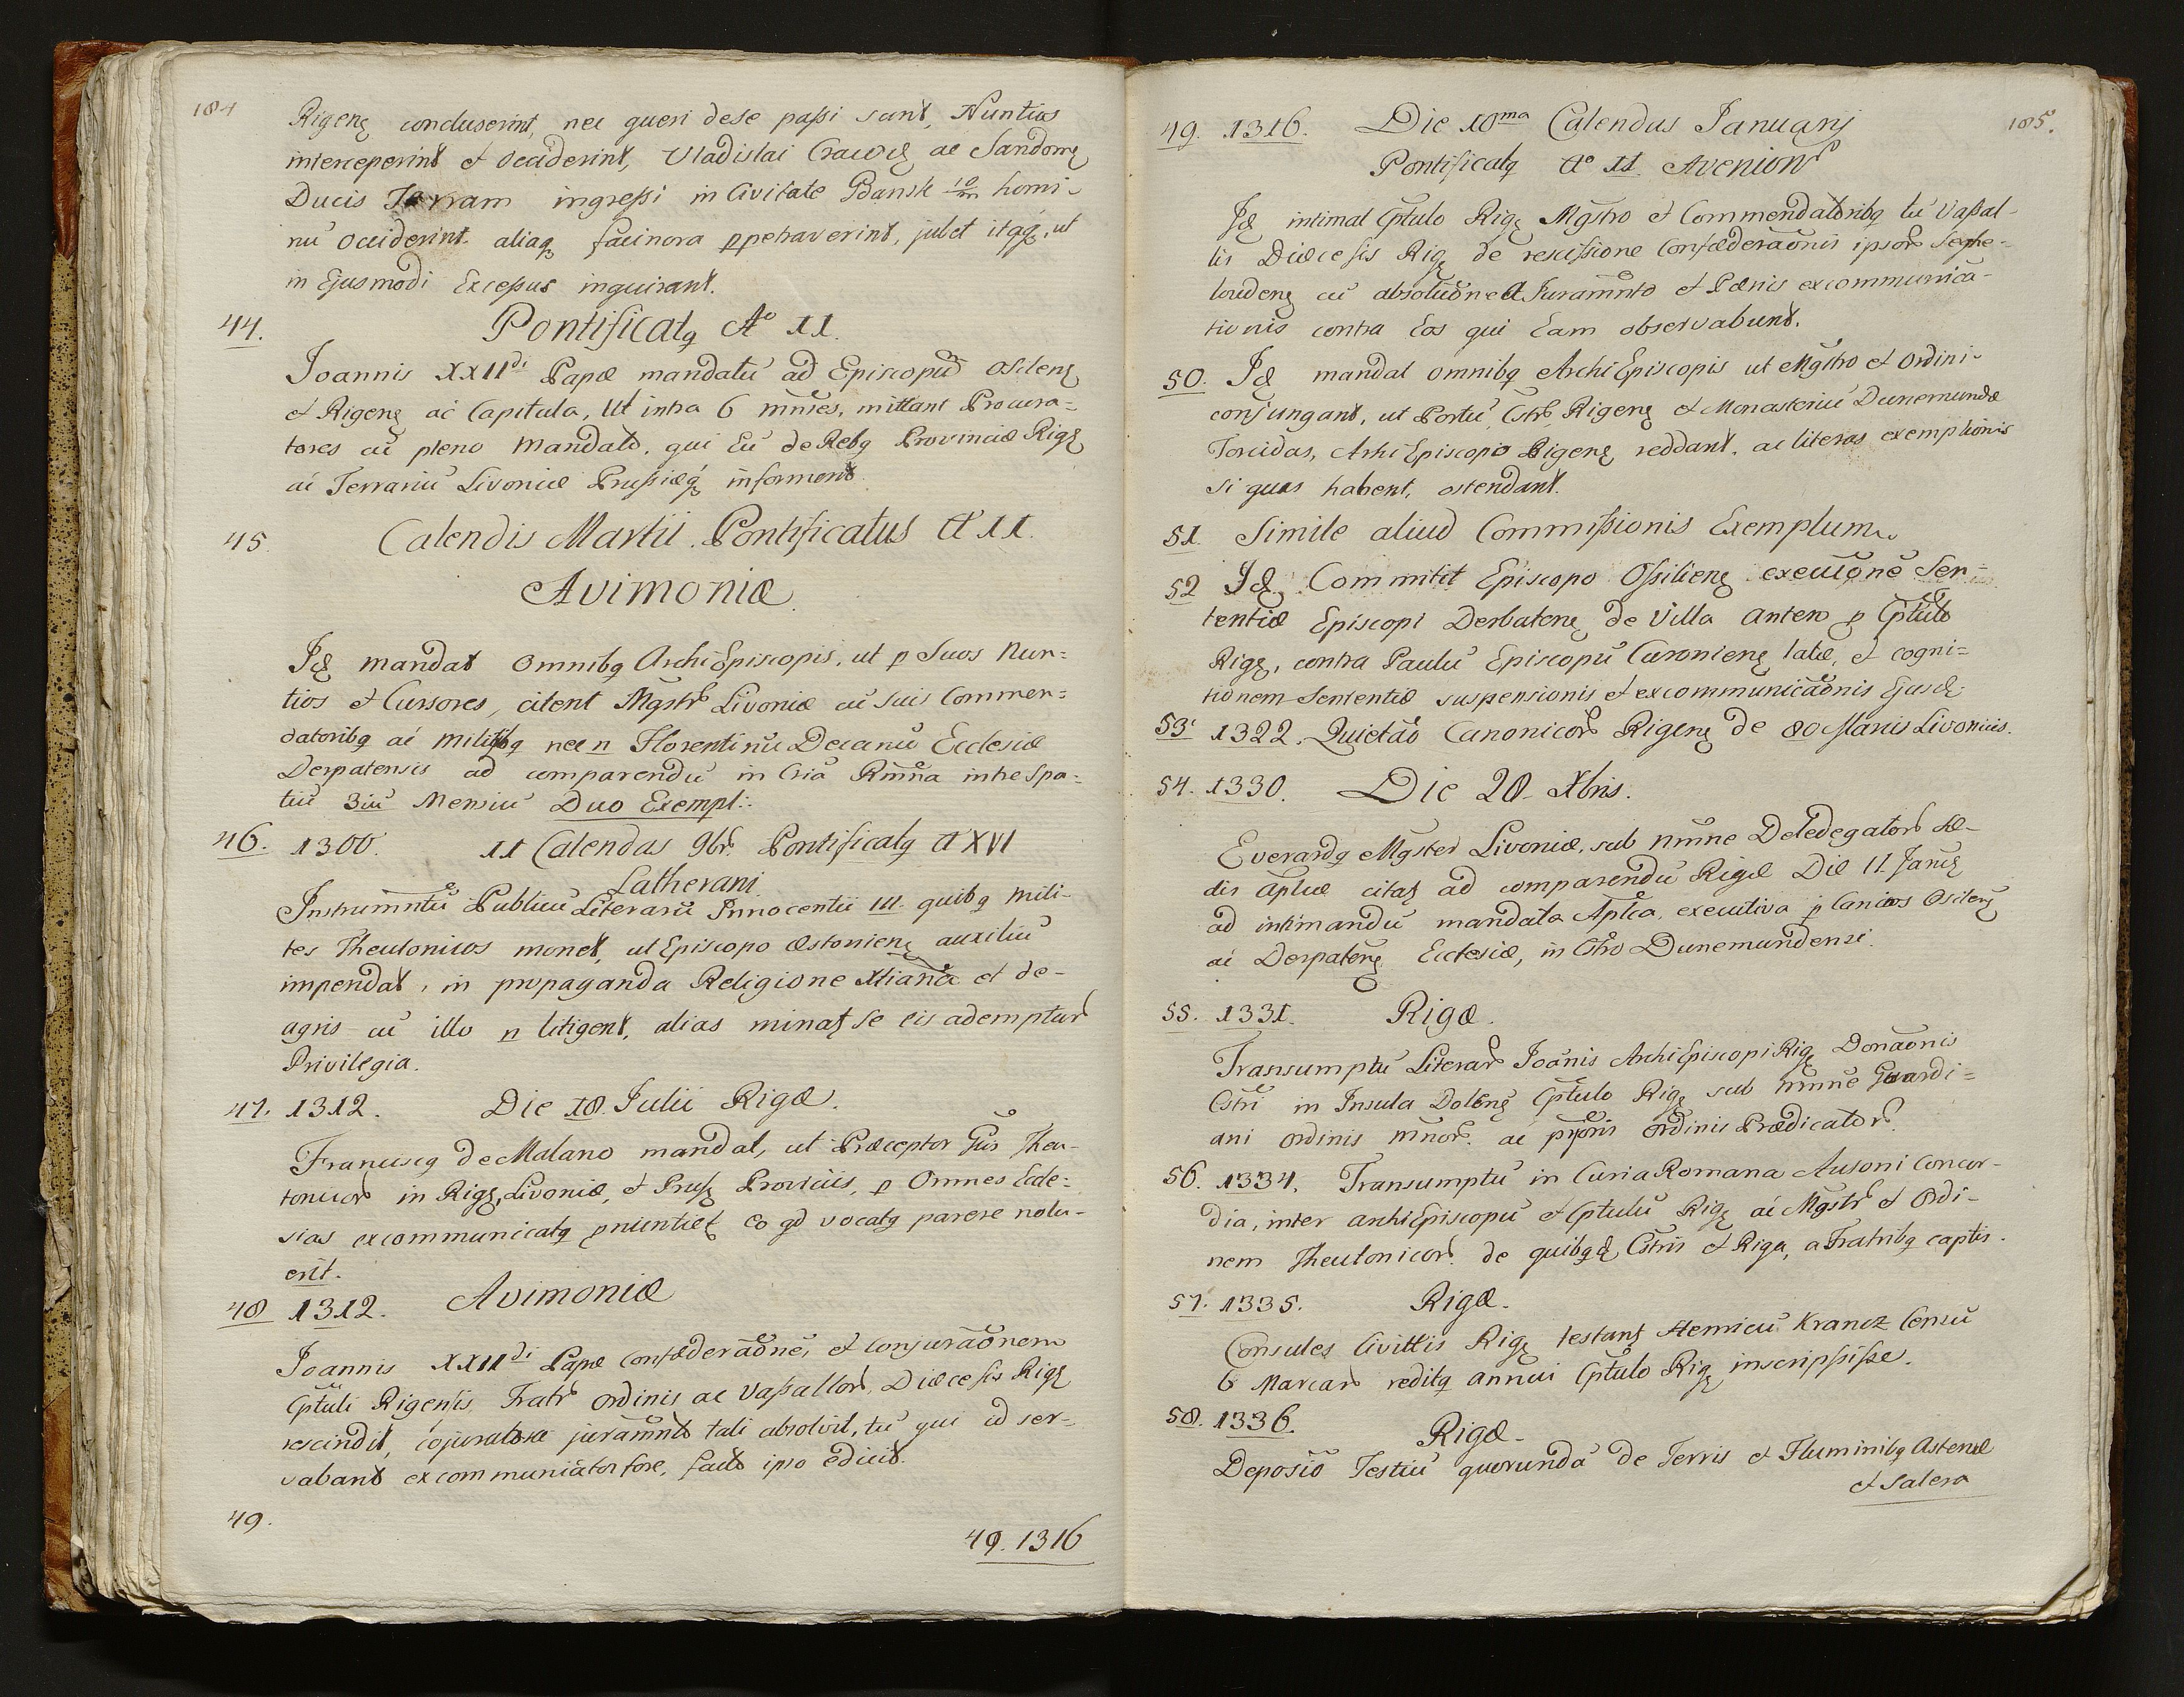 184
Rigenę concluserint, nec queri de se paßi sunt, Nuntios
interceperint et occiderint, Vladislai Cracovię ac Sandomę
Ducis Terram ingreßi in Civitate Gdansk 10/m homi-
nū occiderint aliaqꝫ facinora ꝑpetraverint, jubet itaqꝫ, ut
in Ejusmodi Exceßus inquirant.
44. Pontificatꝫ Aº II.
Joannis XXIIdi Papæ mandatū ad Episcopū Osilenę
et Rigenę ac Capitula, Ut intra 6 mnses, mittant Procura-
tores cū pleno Mandato, qui Eū de Rebꝫ Provinciæ Rigę
ac Terrarū Livoniæ Prußiæqꝫ informent
45. Calendis Martii. Pontificatus A II.
Avimoniæ.
Idę mandat omnibꝫ Archi Episcopis, ut ꝑ Suos Nun-
tios et Cursores, citent Mgstr Livoniæ cū suis Commen-
datoribꝫ ac militibꝫ nec n Florentinū Decanū Ecclesiæ
Derpatensis ad comparendū in Cria Rmna intra Spa-
tiū 3iū Mensiū Duo Exempl:
46. 1300. II Calendas 9br. Pontificatꝫ A XVI
Latherani
Instrumntū Publicū Literarū Innocentii III. quibꝫ mili-
tes Theutonicos monet, ut Episcopo Æstonienę auxiliū
impendat, in propaganda Religione Xtiana et de
agris cū illo n litigent, alias minatꝫ se eis adempturū
Privilegia.
47. 1312. Die 18. Julii Rigæ.
Franciscꝫ de Malano mandat, ut Præceptor Gūs Theu-
tonicor in Rigę, Livoniæ, et Prußę Provinciis, ꝑ Omnes Eccle-
sias excommunicatꝫ ꝓnuntietꝫ Eo qd vocatꝫ parere nolu-
erit.
48 1312. Avimoniæ
Joannis XXIIdi Papæ Confœderaõnē, et Conjuraõnem
Cptuli Rigensis Fratr Ordinis ac Vaßallor, Diœcesis Rigę
rescindit, cōjuratos a juramnto tali absolvit, tū qui id ser-
vabant excommunicator fore, facto ipso edicit.
49.
49. 1316
185.
49. 1316. Die 10ma Calendas Januarij
Pontificatꝫ Aº II. Avenion
Idę intimat Cptulo Rigę Mgstro et Commendatoribꝫ tū Vaßal-
lis Diœcesis Rigę de resciẞione Confœderaõnis ipsor Seghe-
woudenę cū absolutõne a Juramnto et Pœnis excommunica-
tionis contra Eos qui Eam observabunt.
50. Idę mandat omnibꝫ Archi Episcopis ut Mgstro et Ordini
conjungant, ut Portū, Cstr Rigenę et Monasteriū Dunemundæ
Torcidas, Archi Episcopo Rigenę reddant, ac literas exemptionis
si quas habent, ostendant.
51. Simile aliud Commißionis Exemplum.
52 Idę Committit Episcopo Oßilienę executõnē Sen-
tentiæ Episcopi Derbatenę de Villa Anten ꝑ Cptulo
Rigę, contra Paulū Episcopū Curonienę latæ, et cogni-
tionem Sententiæ suspensionis et excommunicaõnis Ejusdę
53. 1322. Quietaõ Canonicor Rigenę de 80 Marcis Livonicis.
54. 1330. Die 28 Xbris.
Everardꝫ Mgster Livoniæ, sub nmne Deledegator Se-
dis Aplicæ citatꝫ ad comparendū Rigæ Diē 11. Janrię
ad intimandū mandata Aplica, executiva ꝑ Canicos Osilenę
ac Derpatenę Ecclesiæ, in Cstro Dunemundensi.
55. 1331. Rigæ.
Transumptū Literar Joānis Archi Episcopi Rigę Donaõnis
Cstri in Insula Dolenę Cptulo Rigę sub nmne Guardi-
ani Ordinis mnor. ac pryoris Ordinis Prædicator.
56. 1334. Transumptū in Curia Romana Ausoni Concor-
dia, inter Archi Episcopū et Cptulū Rigę ac Mgstr et Ordi-
nem Theutonicor. de quibꝫdę Cstris et Riga, a Fratribꝫ captis.
57. 1335. Rigæ.
Consules Civittis Rigę testantꝫ Henricū Krancz Censū
6 Marcar reditꝫ annui Cptulo Rigę inscripsiße.
58. 1336. Rigæ.
Deposiõ Testiū quorundā de Terris et Fluminibꝫ Astenæ
et Salera